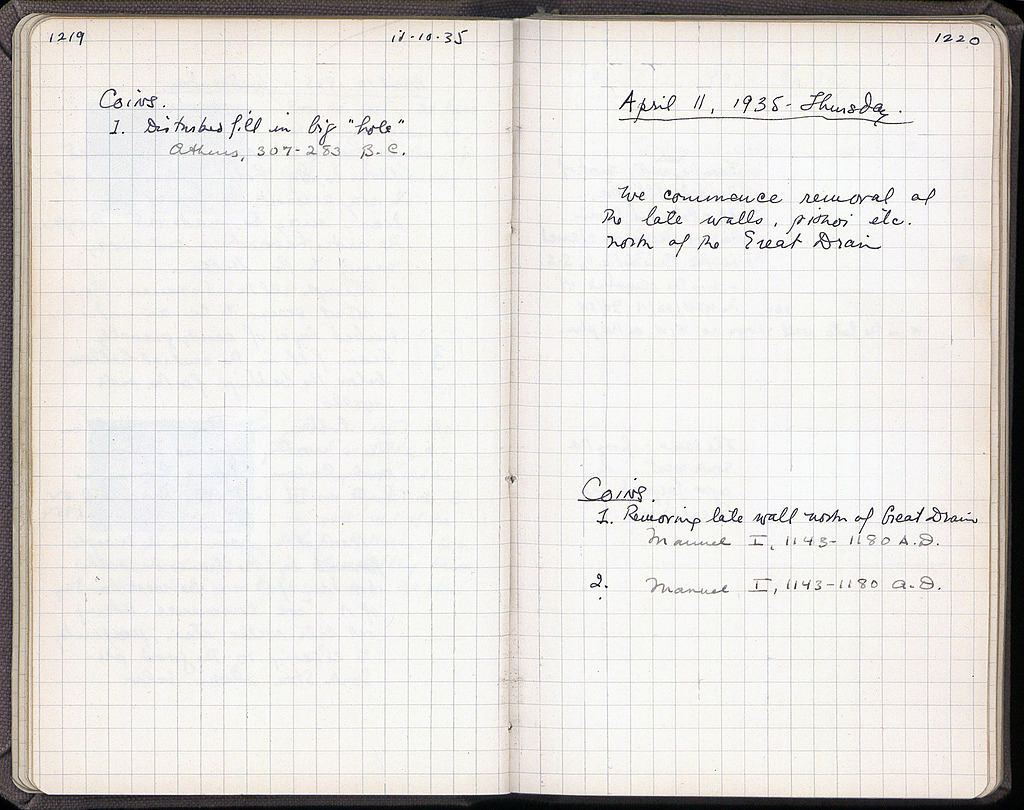 1219
11-10-35
Coins.
1. Disturbed fill in big "hole"
Athens, 307-283 B.C.
1220
April 11, 1935 - Thursday.
We commence removal of
the late walls, pithoi etc.
north of the Great Drain
Coins.
1. Removing late wall north of Great Drain
Manuel I, 1143-1180 A.D.
2. Manuel I, 1143-1180 A.D.